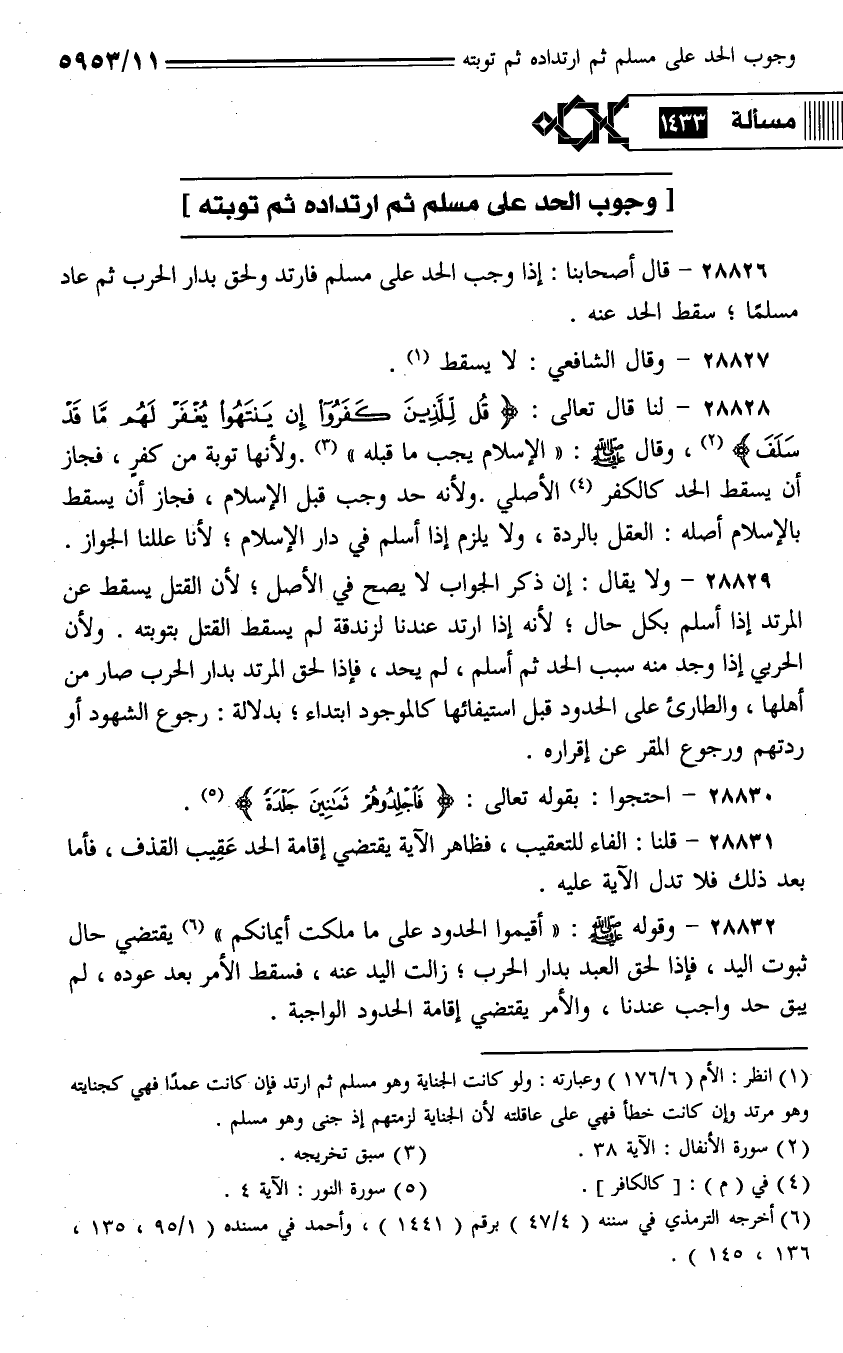 وجوب الحد على مسلم ثم ارتداده ثم توبته ٥٩٥٣/١١
مسألة ١٤٣٣
[ وجوب الحد على مسلم ثم ارتداده ثم توبته ]
٢٨٨٢٦ – قال أصحابنا : إذا وجب الحد على مسلم فارتد ولحق بدار الحرب ثم عاد
مسلمًا ؛ سقط الحد عنه .
٢٨٨٢٧ – وقال الشافعي : لا يسقط (١) .
٢٨٨٢٨ – لنا قال تعالى : ﴿ قُل لِّلَّذِينَ كَفَرُوٓاْ إِن يَنتَهُواْ يُغْفَرْ لَهُم مَّا قَدْ
سَلَفَ ﴾ (٢) ، وقال ﷺ : « الإسلام يجب ما قبله » (٣) .ولأنها توبة من كفرٍ ، فجاز
أن يسقط الحد كالكفر (٤) الأصلي .ولأنه حد وجب قبل الإسلام ، فجاز أن يسقط
بالإسلام أصله : العقل بالردة ، ولا يلزم إذا أسلم في دار الإسلام ؛ لأنا عللنا الجواز .
٢٨٨٢٩ – ولا يقال : إن ذكر الجواب لا يصح في الأصل ؛ لأن القتل يسقط عن
المرتد إذا أسلم بكل حال ؛ لأنه إذا ارتد عندنا لزندقة لم يسقط القتل بتوبته . ولأن
الحربي إذا وجد منه سبب الحد ثم أسلم ، لم يحد ، فإذا لحق المرتد بدار الحرب صار من
أهلها ، والطارئ على الحدود قبل استيفائها كالموجود ابتداء ؛ بدلالة : رجوع الشهود أو
ردتهم ورجوع المقر عن إقراره .
٢٨٨٣٠ – احتجوا : بقوله تعالى : ﴿ فَٱجْلِدُوهُمْ ثَمَٰنِينَ جَلْدَةً ﴾ (٥) .
٢٨٨٣١ – قلنا : الفاء للتعقيب ، فظاهر الآية يقتضي إقامة الحد عَقِيب القذف ، فأما
بعد ذلك فلا تدل الآية عليه .
٢٨٨٣٢ – وقوله ﷺ : « أقيموا الحدود على ما ملكت أيمانكم » (٦) يقتضي حال
ثبوت اليد ، فإذا لحق العبد بدار الحرب ؛ زالت اليد عنه ، فسقط الأمر بعد عوده ، لم
يبق حد واجب عندنا ، والأمر يقتضي إقامة الحدود الواجبة .
(١) انظر : الأم ( ١٧٦/٦ ) وعبارته : ولو كانت الجناية وهو مسلم ثم ارتد فإن كانت عمدًا فهي كجنايته
وهو مرتد وإن كانت خطأ فهي على عاقلته لأن الجناية لزمتهم إذ جنى وهو مسلم .
(٢) سورة الأنفال : الآية ٣٨ . (٣) سبق تخريجه .
(٤) في ( م ) : [ كالكافر ] . (٥) سورة النور : الآية ٤ .
(٦) أخرجه الترمذي في سننه ( ٤٧/٤ ) برقم ( ١٤٤١ ) ، وأحمد في مسنده ( ٩٥/١ ، ١٣٥ ،
١٣٦ ، ١٤٥ ) .